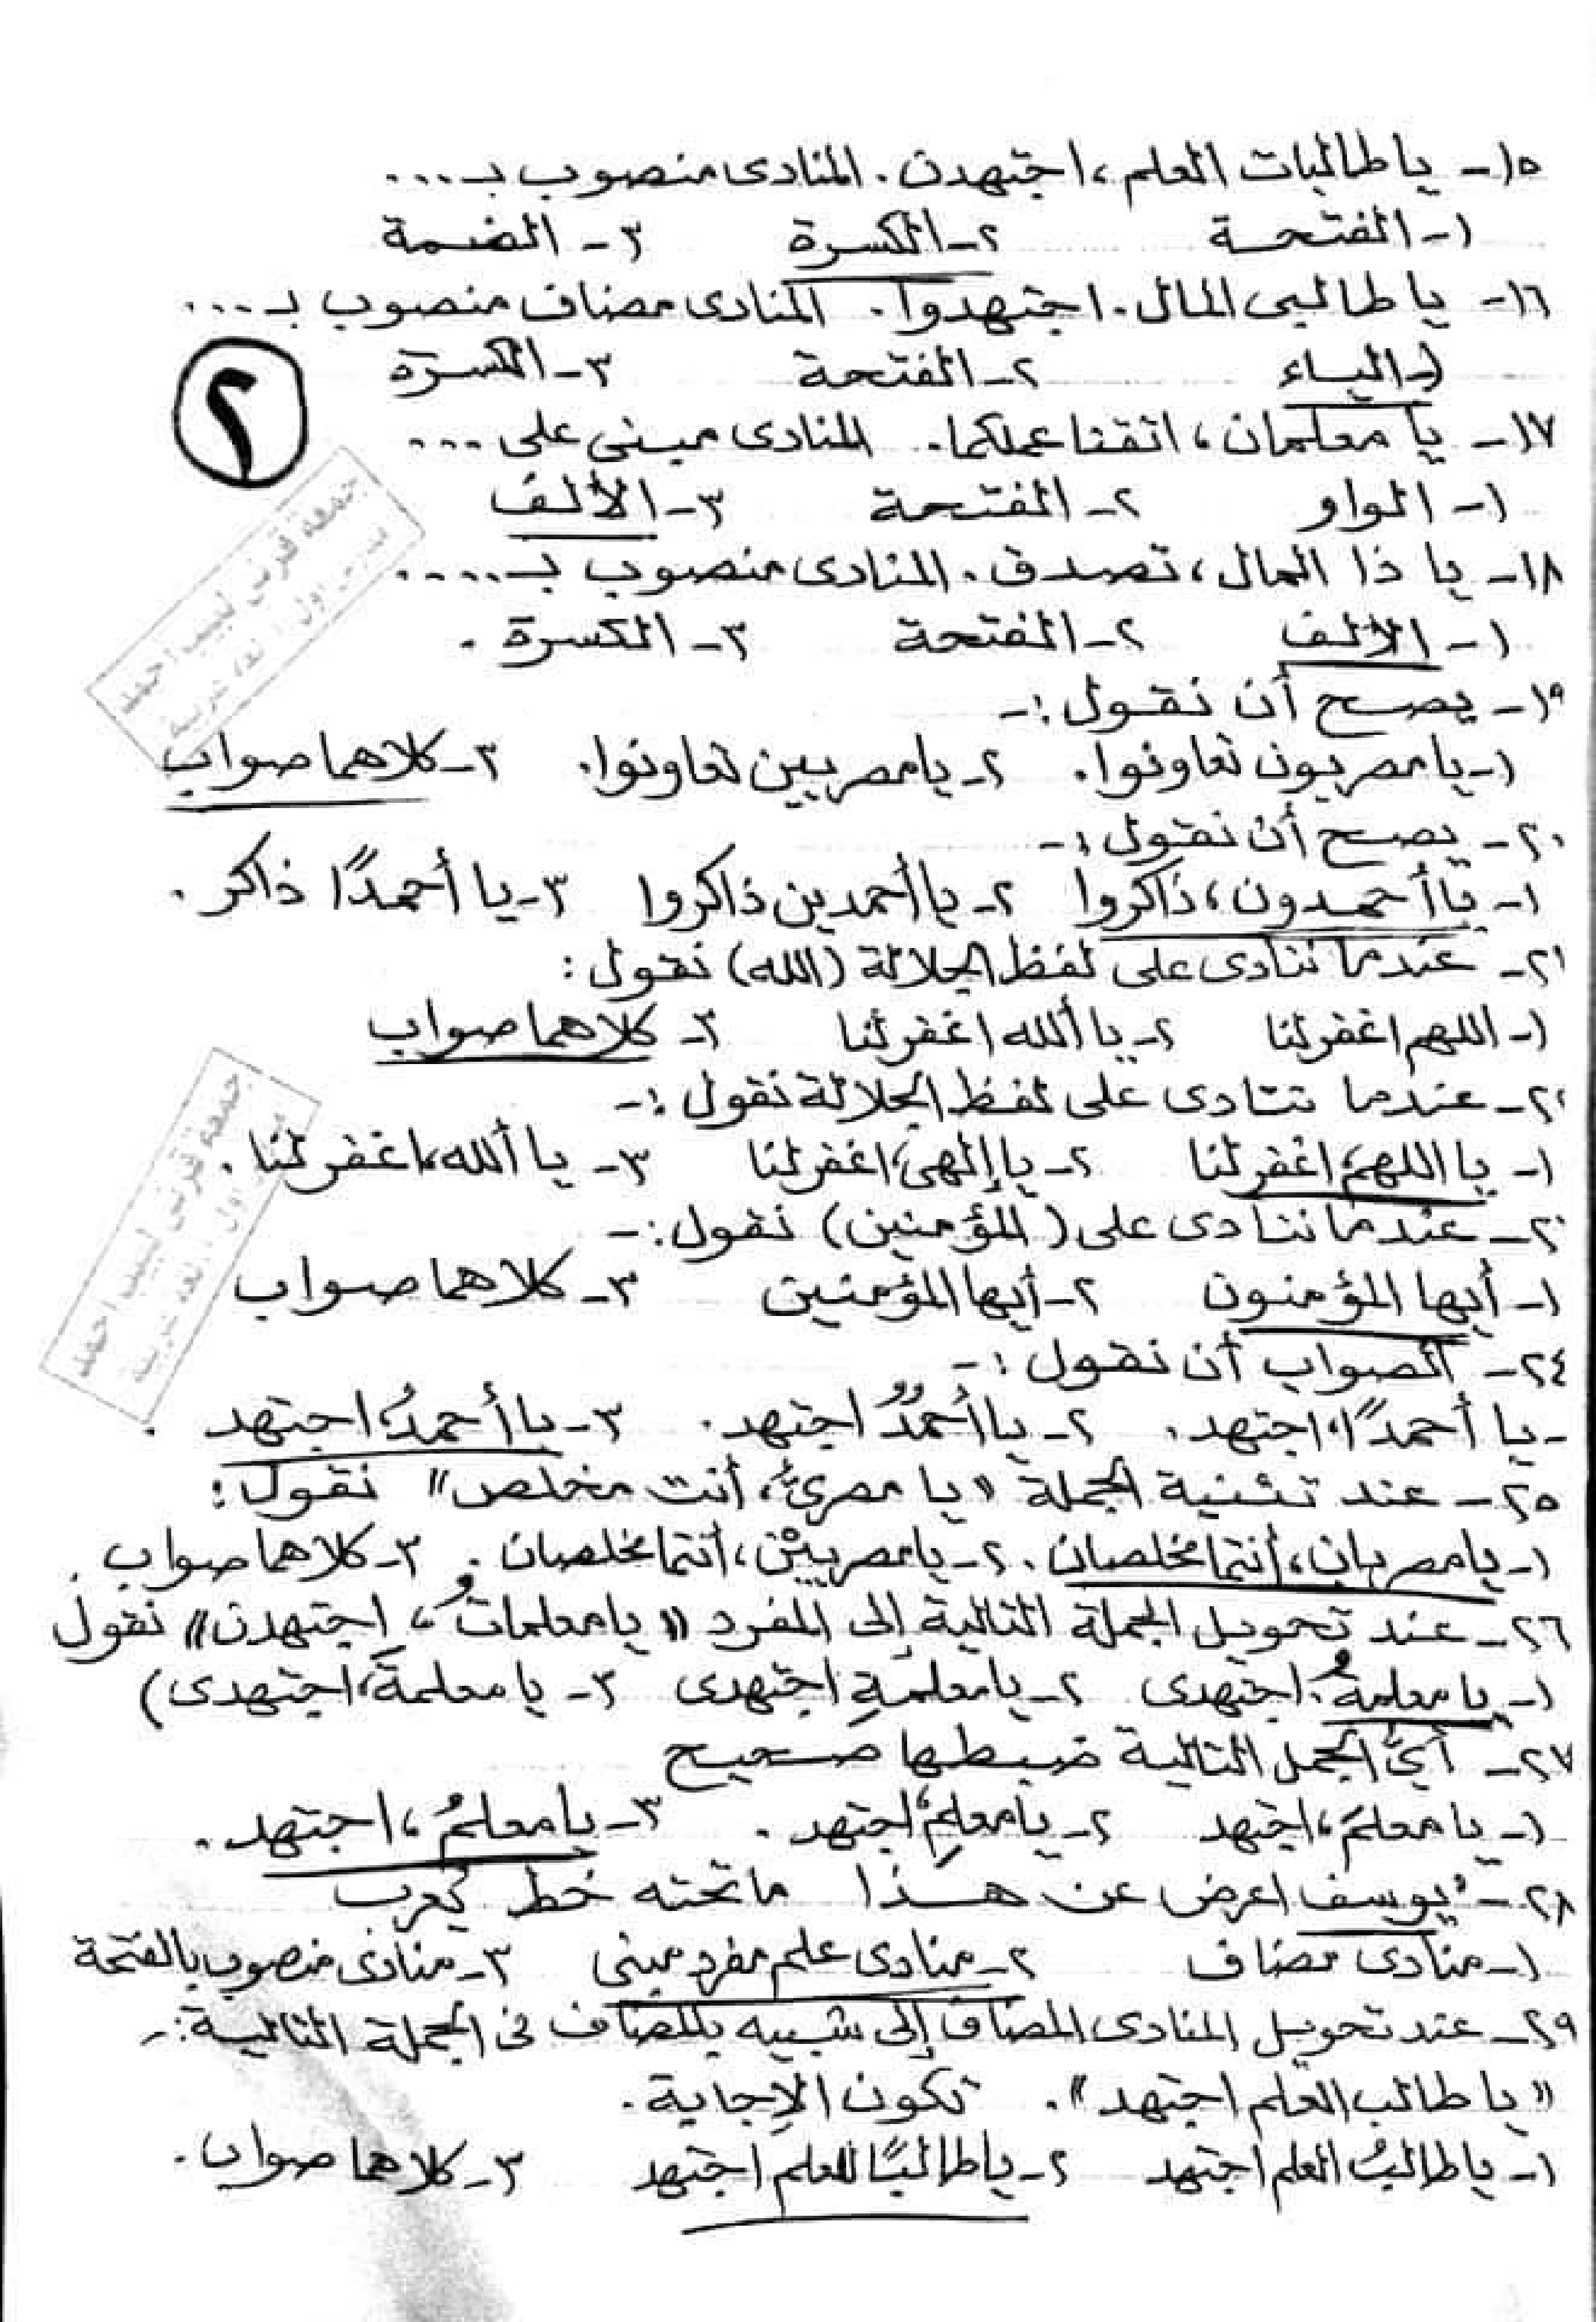 ١٥- يا طالبات العلم، اجتهدن. المنادى منصوب بـ...
١- الفتحة ٢- الكسرة ٣- الضمة
١٦- يا طالبى المال. اجتهدوا. المنادى مضاف منصوب بـ...
١- الياء ٢- الفتحة ٣- الكسرة
٢
١٧- يا معلمان، اتقنا عملكما. المنادى مبنى على ...
١- الواو ٢- الفتحة ٣- الألف
١٨- يا ذا المال، تصدق. المنادى منصوب بـ....
١- الألف ٢- الفتحة ٣- الكسرة.
جمعة قرنى لبيب احمد
١٩- يصح أن نقول:-
١- يا مصريون تعاونوا. ٢- يا مصريين تعاونوا. ٣- كلاهما صواب
٢٠- يصح أن نقول:-
١- يا أحمدون، ذاكروا ٢- يا أحمدين ذاكروا ٣- يا أحمدًا ذاكر.
٢١- عندما ننادى على لفظ الجلالة (الله) نقول:
١- اللهم اغفر لنا ٢- يا ألله اغفر لنا ٣- كلاهما صواب
٢٢- عندما ننادى على لفظ الجلالة نقول:-
١- يا اللهم، اغفر لنا ٢- يا إلهى، اغفر لنا ٣- يا ألله، اغفر لنا.
جمعة قرنى لبيب احمد
٢- عندما ننادى على (المؤمنين) نقول:-
١- أيها المؤمنون ٢- أيها المؤمنين ٣- كلاهما صواب
٢٤- الصواب أن نقول:-
- يا أحمدًا، اجتهد. ٢- يا أحمدٌ اجتهد. ٣- يا أحمدُ، اجتهد.
٢٥- عند تثنية الجملة "يا مصرىُّ، أنت مخلص" نقول:
١- يا مصريان، أنتما مخلصان. ٢- يا مصريَيْن، أنتما مخلصان. ٣- كلاهما صواب.
٢٦- عند تحويل الجملة التالية إلى المفرد "يا معلماتُ، اجتهدن" نقول
١- يا معلمةُ، اجتهدى ٢- يا معلمةِ اجتهدى ٣- يا معلمةَ، اجتهدى)
٢٧- أىُّ الجمل التالية ضبطها صحيح
١- يا معلمَ، اجتهد ٢- يا معلمِ، اجتهد. ٣- يا معلمُ، اجتهد.
٢٨- "يوسف اعرض عن هذا ما تحته خط يُعرب
١- منادى مضاف ٢- منادى علم مفرد مبنى ٣- منادى منصوب بالفتحة
٢٩- عند تحويل المنادى المضاف إلى شبيه بالمضاف فى الجملة التالية:-
"يا طالب العلم اجتهد". تكون الإجابة.
١- يا طالبُ العلم اجتهد ٢- يا طالبًا للعلم اجتهد ٣- كلاهما صواب.